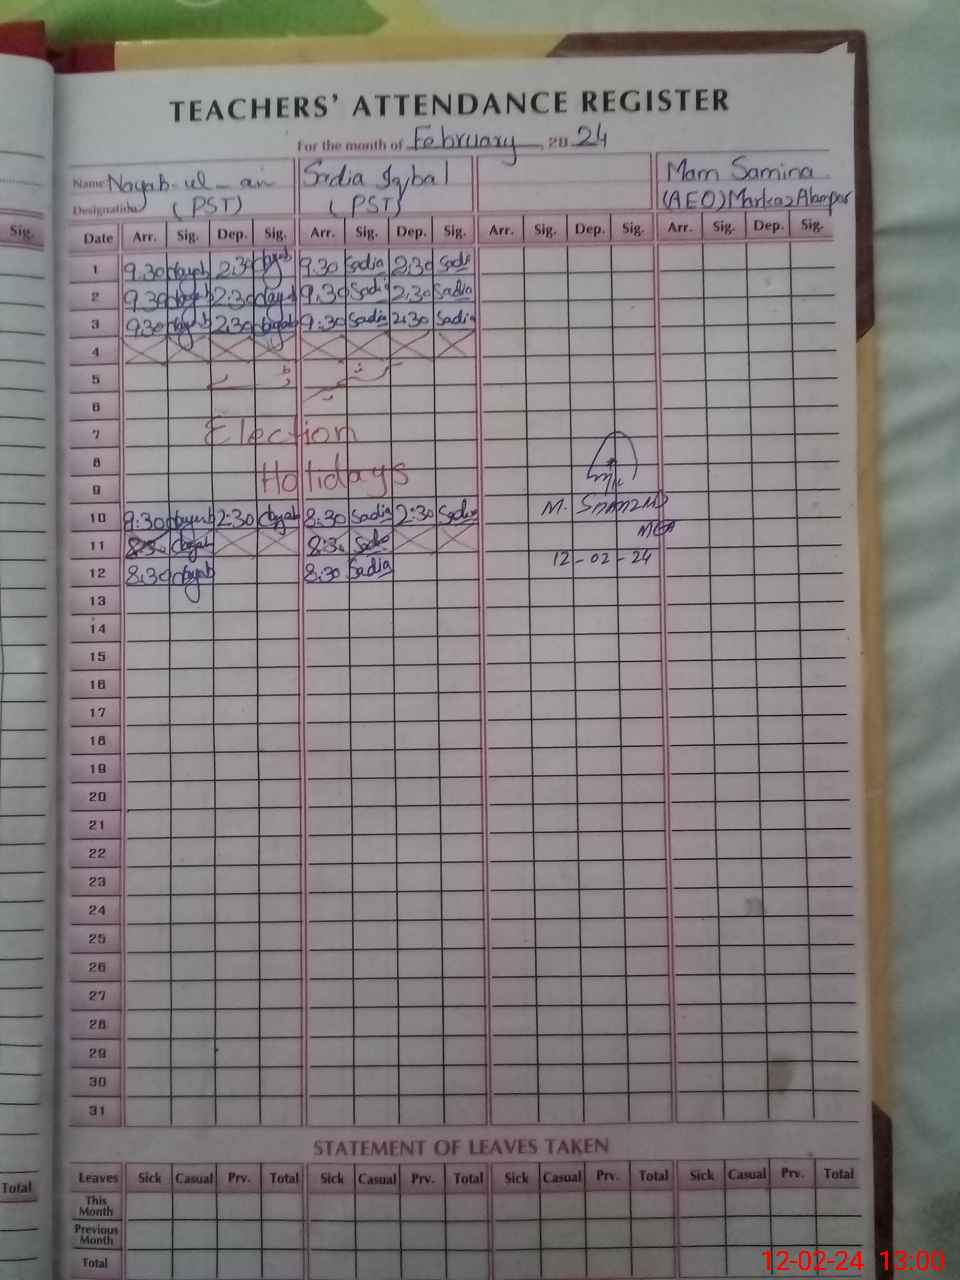 TEACHERS' ATTENDANCE REGISTER
For the month of February, 20 24
Name Nayab-ul-ain Sadia Iqbal Mam Samina
Designation (PST) (PST) (AEO) Markaz Alampur
Sig.
Date Arr. Sig. Dep. Sig. Arr. Sig. Dep. Sig. Arr. Sig. Dep. Sig. Arr. Sig. Dep. Sig.
1 9.30 Nayab 2:30 Nayab 9.30 Sadia 2:30 Sadi
2 9.30 Nayab 2:30 Nayab 9.30 Sadi 2.30 Sadia
3 9.30 Nayab 2.30 Nayab 9:30 Sadia 2:30 Sadia
4
5
6
7 Election
8 Holidays
9
10 9:30 Nayab 2:30 Nayab 8:30 Sadia 2:30 Sadia M.
11 8:30 Nayab 8:3. Sadia MEA
12 8.30 Nayab 8:30 Sadia 12-02-24
13
14
15
16
17
18
19
20
21
22
23
24
25
26
27
28
29
30
31
STATEMENT OF LEAVES TAKEN
Total
Leaves Sick Casual Prv. Total Sick Casual Prv. Total Sick Casual Prv. Total Sick Casual Prv. Total
This
Month
Previous
Month
Total
12-02-24 13:00